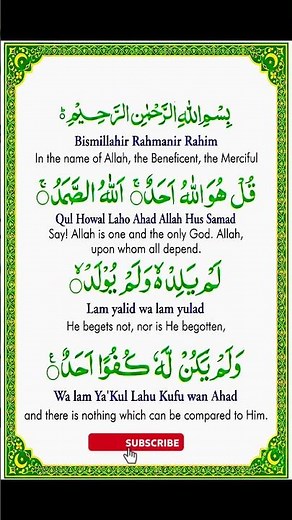 بِسْمِ اللهِ الرَّحْمٰنِ الرَّحِیْمِ
Bismillahir Rahmanir Rahim
In the name of Allah, the Beneficent, the Merciful
قُلْ هُوَ اللّٰهُ اَحَدٌ ۚ اَللّٰهُ الصَّمَدُ ۚ
Qul Howal Laho Ahad Allah Hus Samad
Say! Allah is one and the only God. Allah,
upon whom all depend.
لَمْ یَلِدْ ۙ وَلَمْ یُوْلَدْ ۙ
Lam yalid wa lam yulad
He begets not, nor is He begotten,
وَلَمْ یَكُنْ لَّهٗ كُفُوًا اَحَدٌ ۚ
Wa lam Ya'Kul Lahu Kufu wan Ahad
and there is nothing which can be compared to Him.
SUBSCRIBE